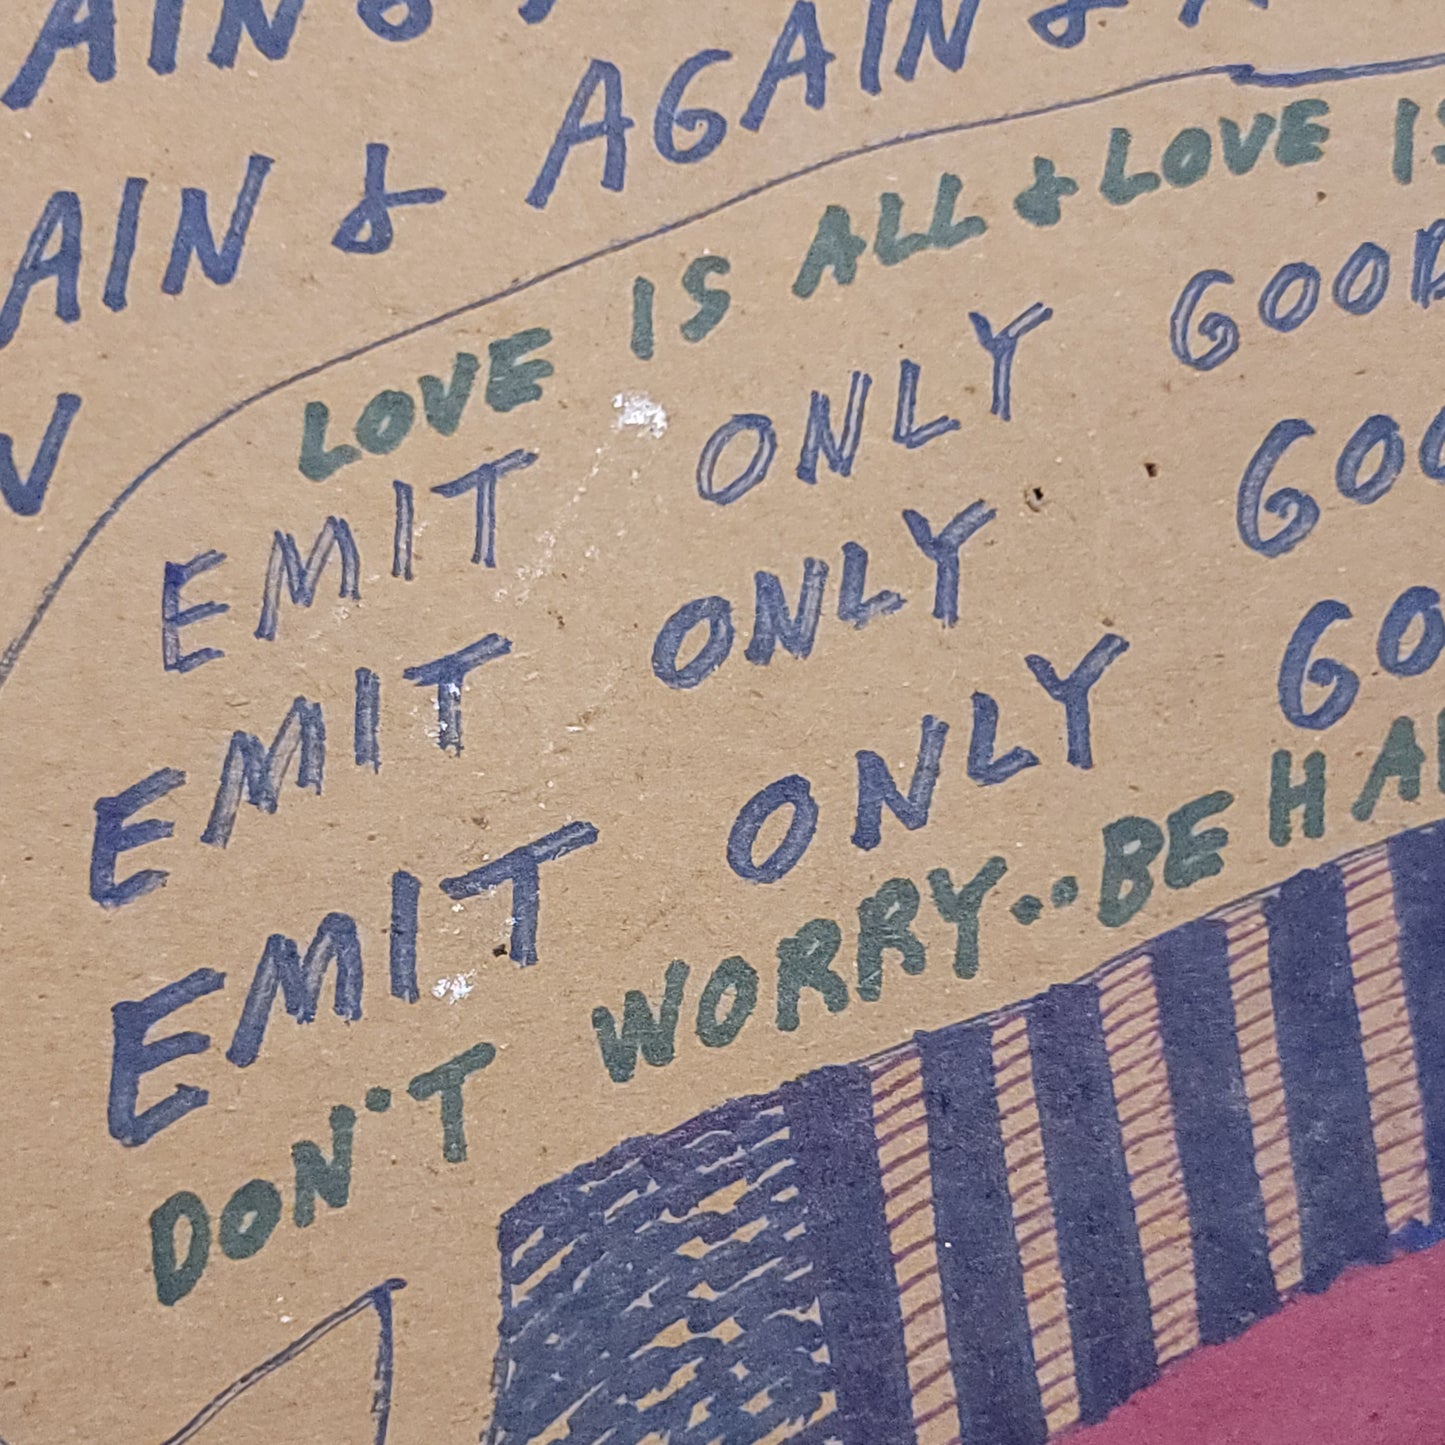 AIN &
AIN & AGAIN &
LOVE IS ALL & LOVE IS
EMIT ONLY GOOD
EMIT ONLY GOO
EMIT ONLY GO
DON'T WORRY..BE HA